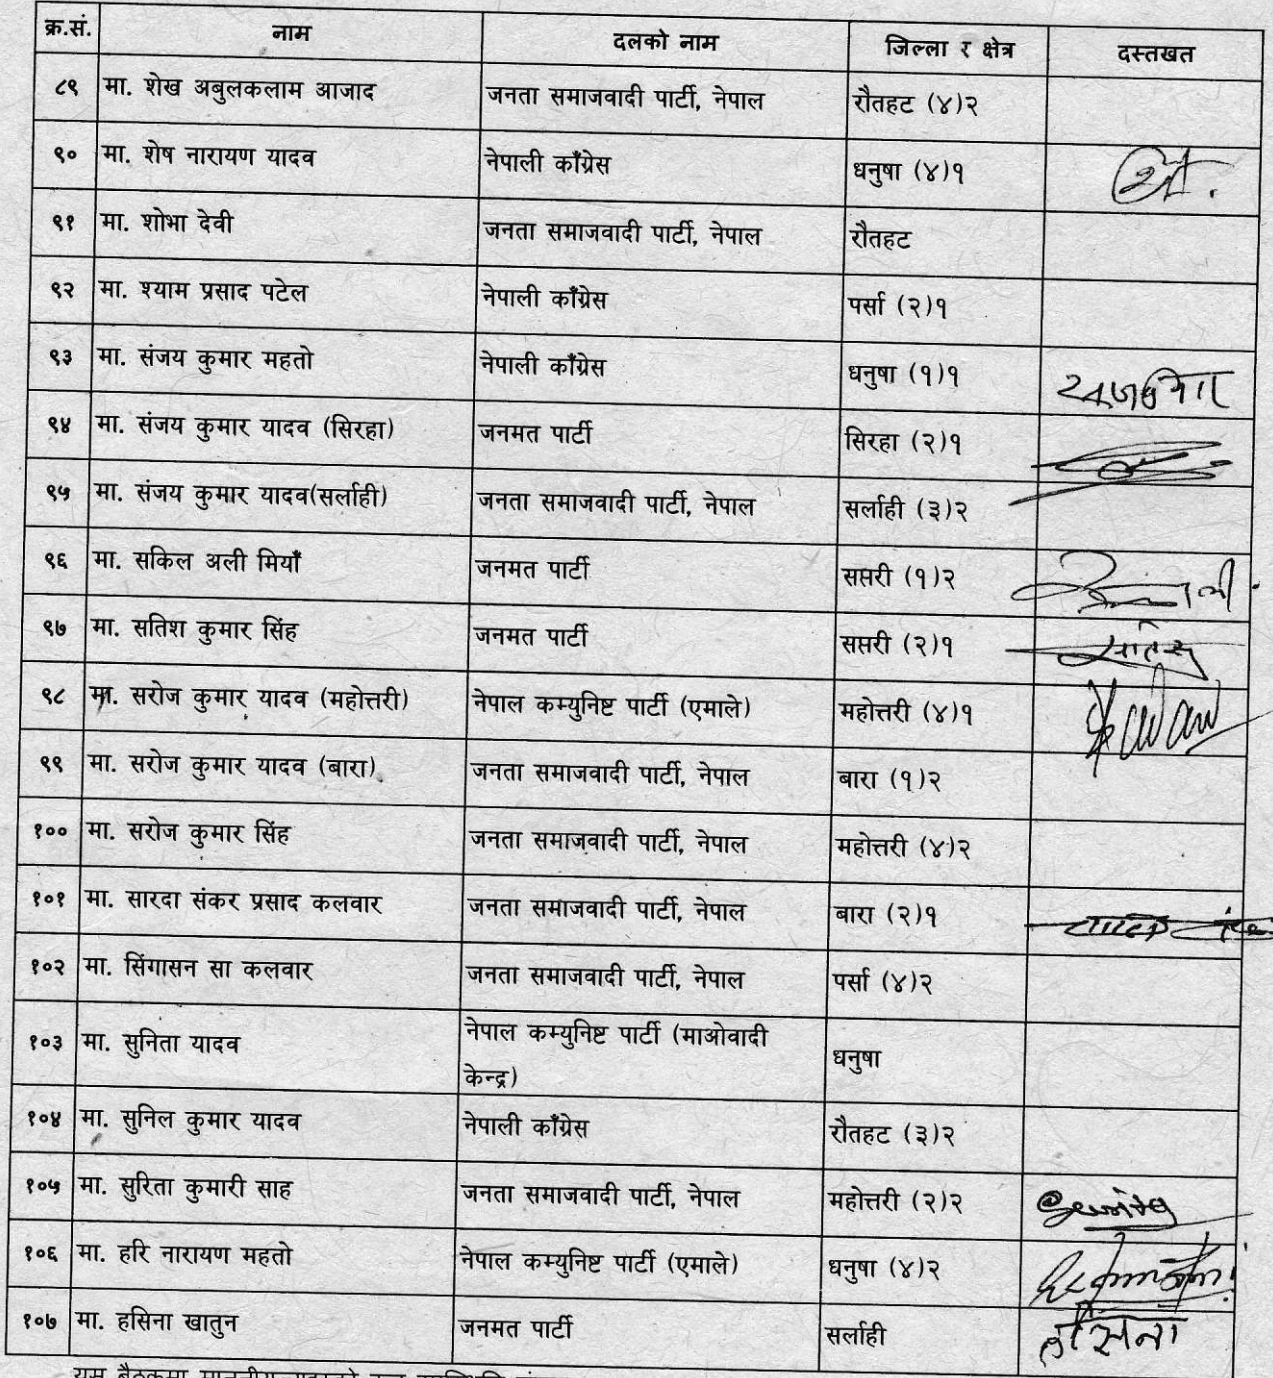 क्र.सं. नाम दलको नाम जिल्ला र क्षेत्र दस्तखत
८९ मा. शेख अबुलकलाम आजाद जनता समाजवादी पार्टी, नेपाल रौतहट (४)२
९० मा. शेष नारायण यादव नेपाली काँग्रेस धनुषा (४)१
९१ मा. शोभा देवी जनता समाजवादी पार्टी, नेपाल रौतहट
९२ मा. श्याम प्रसाद पटेल नेपाली काँग्रेस पर्सा (२)१
९३ मा. संजय कुमार महतो नेपाली काँग्रेस धनुषा (१)१
९४ मा. संजय कुमार यादव (सिरहा) जनमत पार्टी सिरहा (२)१
९५ मा. संजय कुमार यादव(सर्लाही) जनता समाजवादी पार्टी, नेपाल सर्लाही (३)२
९६ मा. सकिल अली मियाँ जनमत पार्टी सप्तरी (१)२
९७ मा. सतिश कुमार सिंह जनमत पार्टी सप्तरी (२)१
९८ मा. सरोज कुमार यादव (महोत्तरी) नेपाल कम्युनिष्ट पार्टी (एमाले) महोत्तरी (४)१
९९ मा. सरोज कुमार यादव (बारा) जनता समाजवादी पार्टी, नेपाल बारा (१)२
१०० मा. सरोज कुमार सिंह जनता समाजवादी पार्टी, नेपाल महोत्तरी (४)२
१०१ मा. सारदा संकर प्रसाद कलवार जनता समाजवादी पार्टी, नेपाल बारा (२)१
१०२ मा. सिंगासन सा कलवार जनता समाजवादी पार्टी, नेपाल पर्सा (४)२
१०३ मा. सुनिता यादव नेपाल कम्युनिष्ट पार्टी (माओवादी
केन्द्र) धनुषा
१०४ मा. सुनिल कुमार यादव नेपाली काँग्रेस रौतहट (३)२
१०५ मा. सुरिता कुमारी साह जनता समाजवादी पार्टी, नेपाल महोत्तरी (२)२
१०६ मा. हरि नारायण महतो नेपाल कम्युनिष्ट पार्टी (एमाले) धनुषा (४)२
१०७ मा. हसिना खातुन जनमत पार्टी सर्लाही